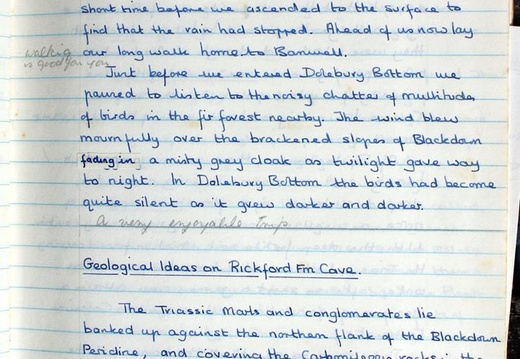 short time before we ascended to the surface to
find that the rain had stopped. Ahead of us now lay
our long walk home to Banwell.
walking
is good for you
Just before we entered Dolebury Bottom we
paused to listen to the noisy chatter of multitudes
of birds in the fir forest nearby. The wind blew
mournfully over the brackened slopes of Blackdown
fading in a misty grey cloak as twilight gave way
to night. In Dolebury Bottom the birds had become
quite silent as it grew darker and darker.
A very enjoyable trip
Geological Ideas on Rickford Fm Cave.
The Triassic Marls and conglomerates lie
banked up against the northern flank of the Blackdown
Pericline, and covering the Carboniferous rocks in the